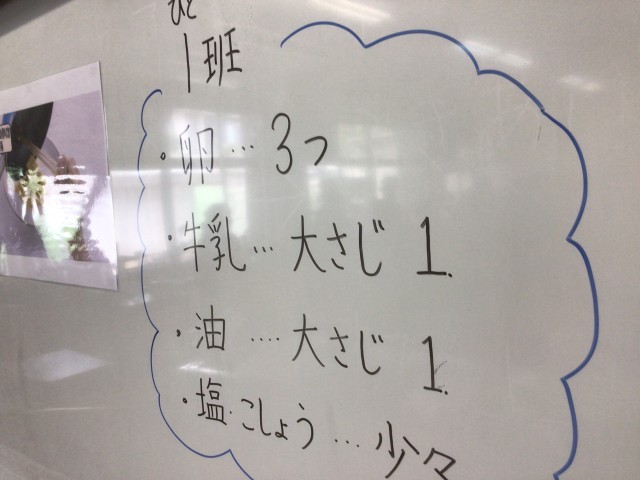 1班
・卵…3つ
・牛乳…大さじ 1.
・油....大さじ 1.
・塩.こしょう...少々